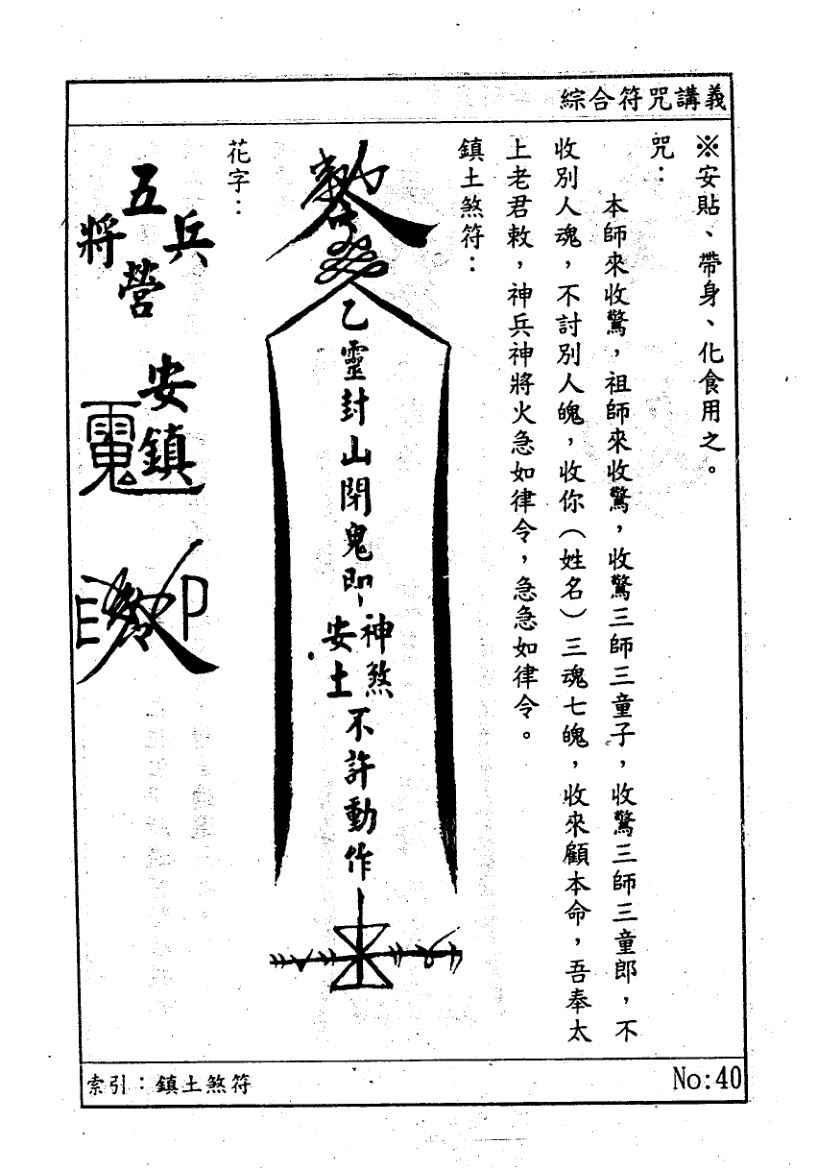 綜合符咒講義
※安貼、帶身、化食用之。
咒：
本師來收驚，祖師來收驚，收驚三師三童子，收驚三師三童郎，不
收別人魂，不討別人魄，收你（姓名）三魂七魄，收來顧本命，吾奉太
上老君敕，神兵神將火急如律令，急急如律令。
鎮土煞符：
乙靈封山閉鬼卽
神煞
安土
不許動作
花字：
五
兵
將
營
安
鎮
印
索引：鎮土煞符
No:40